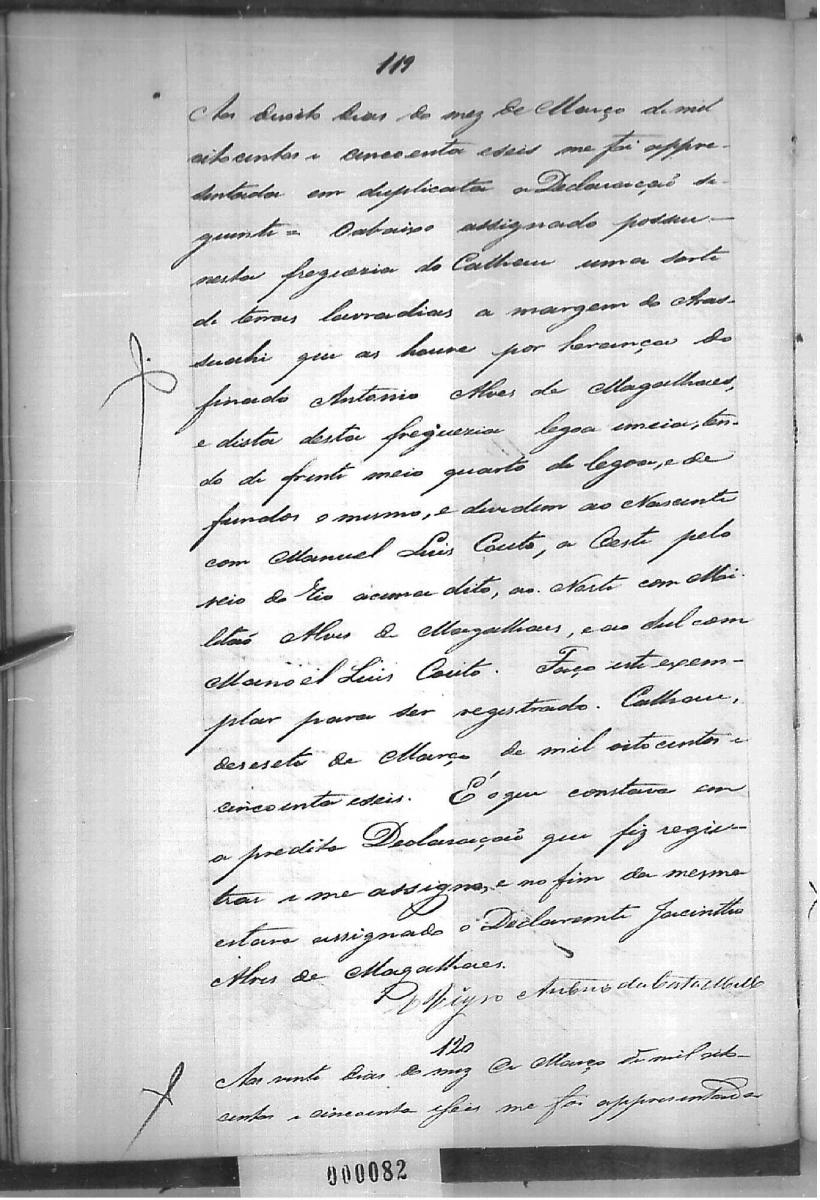 119
Aos dezoito dias do mez de Março de mil
oitocentos e cincoenta e seis me foi appre-
sentada em duplicata a Declaração se-
guinte = O abaixo assignado possue
nesta freguezia do Calhau uma sorte
de terras lavradias a margem do Aras-
suahi que as houve por herança do
finado Antonio Alves de Magalhaes,
e dista desta freguezia legoa e meia, ten-
do de frente meio quarto de legoa, e de
fundos o mesmo, e dividem ao Nascente
com Manuel Luis Couto, a Oeste pelo
veio do Rio acima dito, ao Norte com Mi-
litaõ Alves de Magalhaes, e ao Sul com
Manoel Luis Couto. Faço este exem-
plar para ser registrado. Calhau,
desesete de Março de mil oitocentos e
cincoenta e seis. É o que constava em
a predita Declaração que fiz regis-
trar e me assigno, e no fim da mesma
estava assignado o Declarante Jacintho
Alves de Magalhaes.
Antonio da Costa Mello
120
Aos vinte dias do mez de Março de mil oito-
centos e cincoenta e seis me foi appresentada
000082